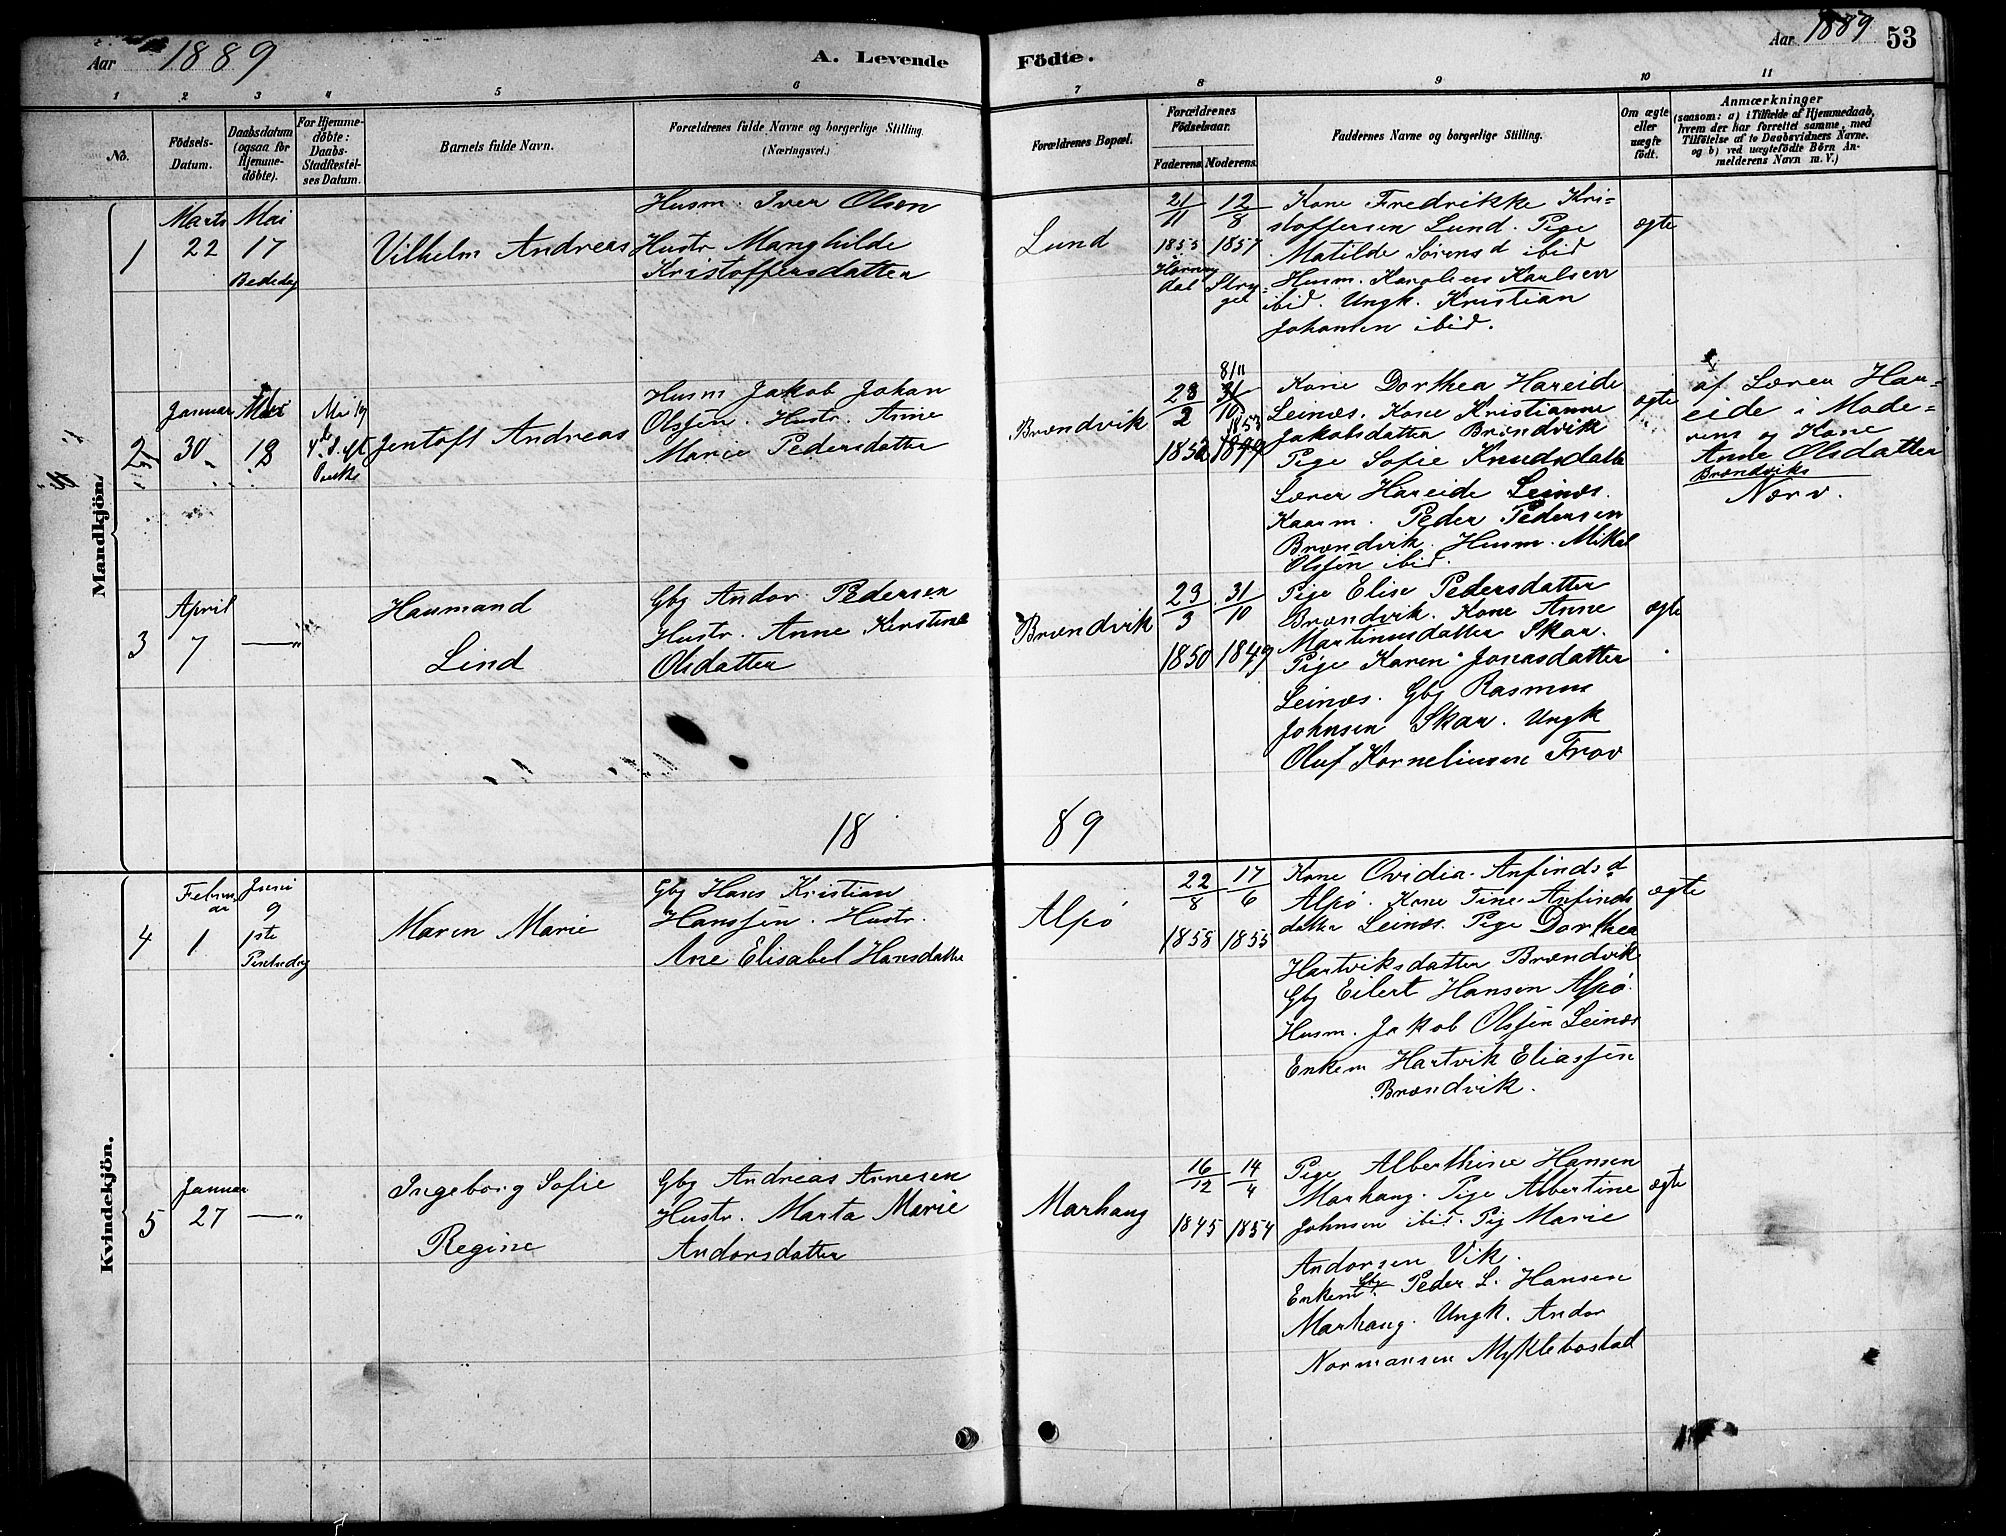 Aar 1889
A. Levende
Födte.
Aar 1889
53
1 2 3 4 5 6 7 8 9 10 11
No.
Födsels-
Datum.
Daabsdatum
(ogsaa for
Hjemme-
döbte).
For Hjemme-
döbte:
Daabs-
Stadfæstel-
ses Datum.
Barnets fulde Navn.
Forældrenes fulde Navne og borgerlige Stilling.
(Næringsvei.)
Forældrenes Bopæl.
Forældrenes
Födselsaar.
Faderens.
Moderens.
Faddernes Navne og borgerlige Stilling.
Om ægte
eller
uægte
født.
Anmærkninger
(saasom: a) i Tilfælde af Hjemmedaab,
hvem der har forrettet samme, med
Tilföielse af to Daabsvidners Navne.
og b) ved uægtefödte Börn An-
melderens Navn m. V.)
Mandkjön.
1
Marts
22
Mai
17
Bededag
Vilhelm Andreas
Husm. Iver Olsen
Hustr Manghilde
Kristoffersdatter
Lund
21/11
1853
Hornin
dal
12/8
1857
Stry-
Kone Fredrikke Kri-
stoffersen Lund. Pige
Matilde Sörens d ibid
Husm. Karolius Karlsen
ibid. Ungk. Kristian
Johansen ibid.
ægte
2
Januar
30
Mai
12
Jentoft Andreas
Husm Jakob Johan
Olssen. Hustr. Anne
Marie Pedersdatter
Brændvik
28/2
1852
8/11
31/10
1853
1849
Kone Dorthea Hareide
Leinæs. Kone Kristianne
Jakobsdatter Brændvik
Pige Sofie Knudsdatte
Lærer Hareide Leinæs.
Kaarm. Peder Pedersen
Brændvik. Husm. Mikal
Olssen ibid.
ægte
af Lærer Har-
eide i Mode-
rens og Kone
Anne Olsdatter
Brændviks
Nærv.
3
April
7
— "
Haumand
Lind
Gbg Andor Pedersen
Hustr. Anne Kerstine
Olsdatter
Brændvik
29/3
1850
31/10
1849
Pige Elise Pedersdatter
Brændvik. Kone Anne
Martinusdatter Skar.
Pige Karen Jonasdatter
Leinæs. Gbg Rasmus
Johnsen Skar. Ungk
Oluf Korneliussen Trov
ægte
18
89
Kvindekjön.
4
Febru-
ar
1
Juni
9
1ste
Pintsedag
Maren Marie
Gbg Hans Kristian
Hanssen. Hustr.
Ane Elisabet Hansdatte
Alpö
22/8
1858
17/6
1855
Kone Ovidia Anfinds d
Alpö. Kone Tine Anfinds
datter Leinæs. Pige Dorthea
Hartviksdatter Brændvik
Gbg Eilert Hansen Alpö.
Husm. Jakob Olssen Leinæs
Enkem Hartvik Eliassen
Brændvik.
ægte
5
Januar
27
— "
Ingeborg Sofie
Regine
Gbg Andreas Arnesen
Hustr. Marta Marie
Andorsdatter
Marhaug
16/12
1845
14/4
1854
Pige Alberthine Hansen
Marhaug. Pige Albertine
Johnsen ibid. Pig Marie
Andorsen Vik.
Enkem Gbg Peder L. Hansen
Marhaug. Ungk. Andor
Normansen Myklebostad
ægte